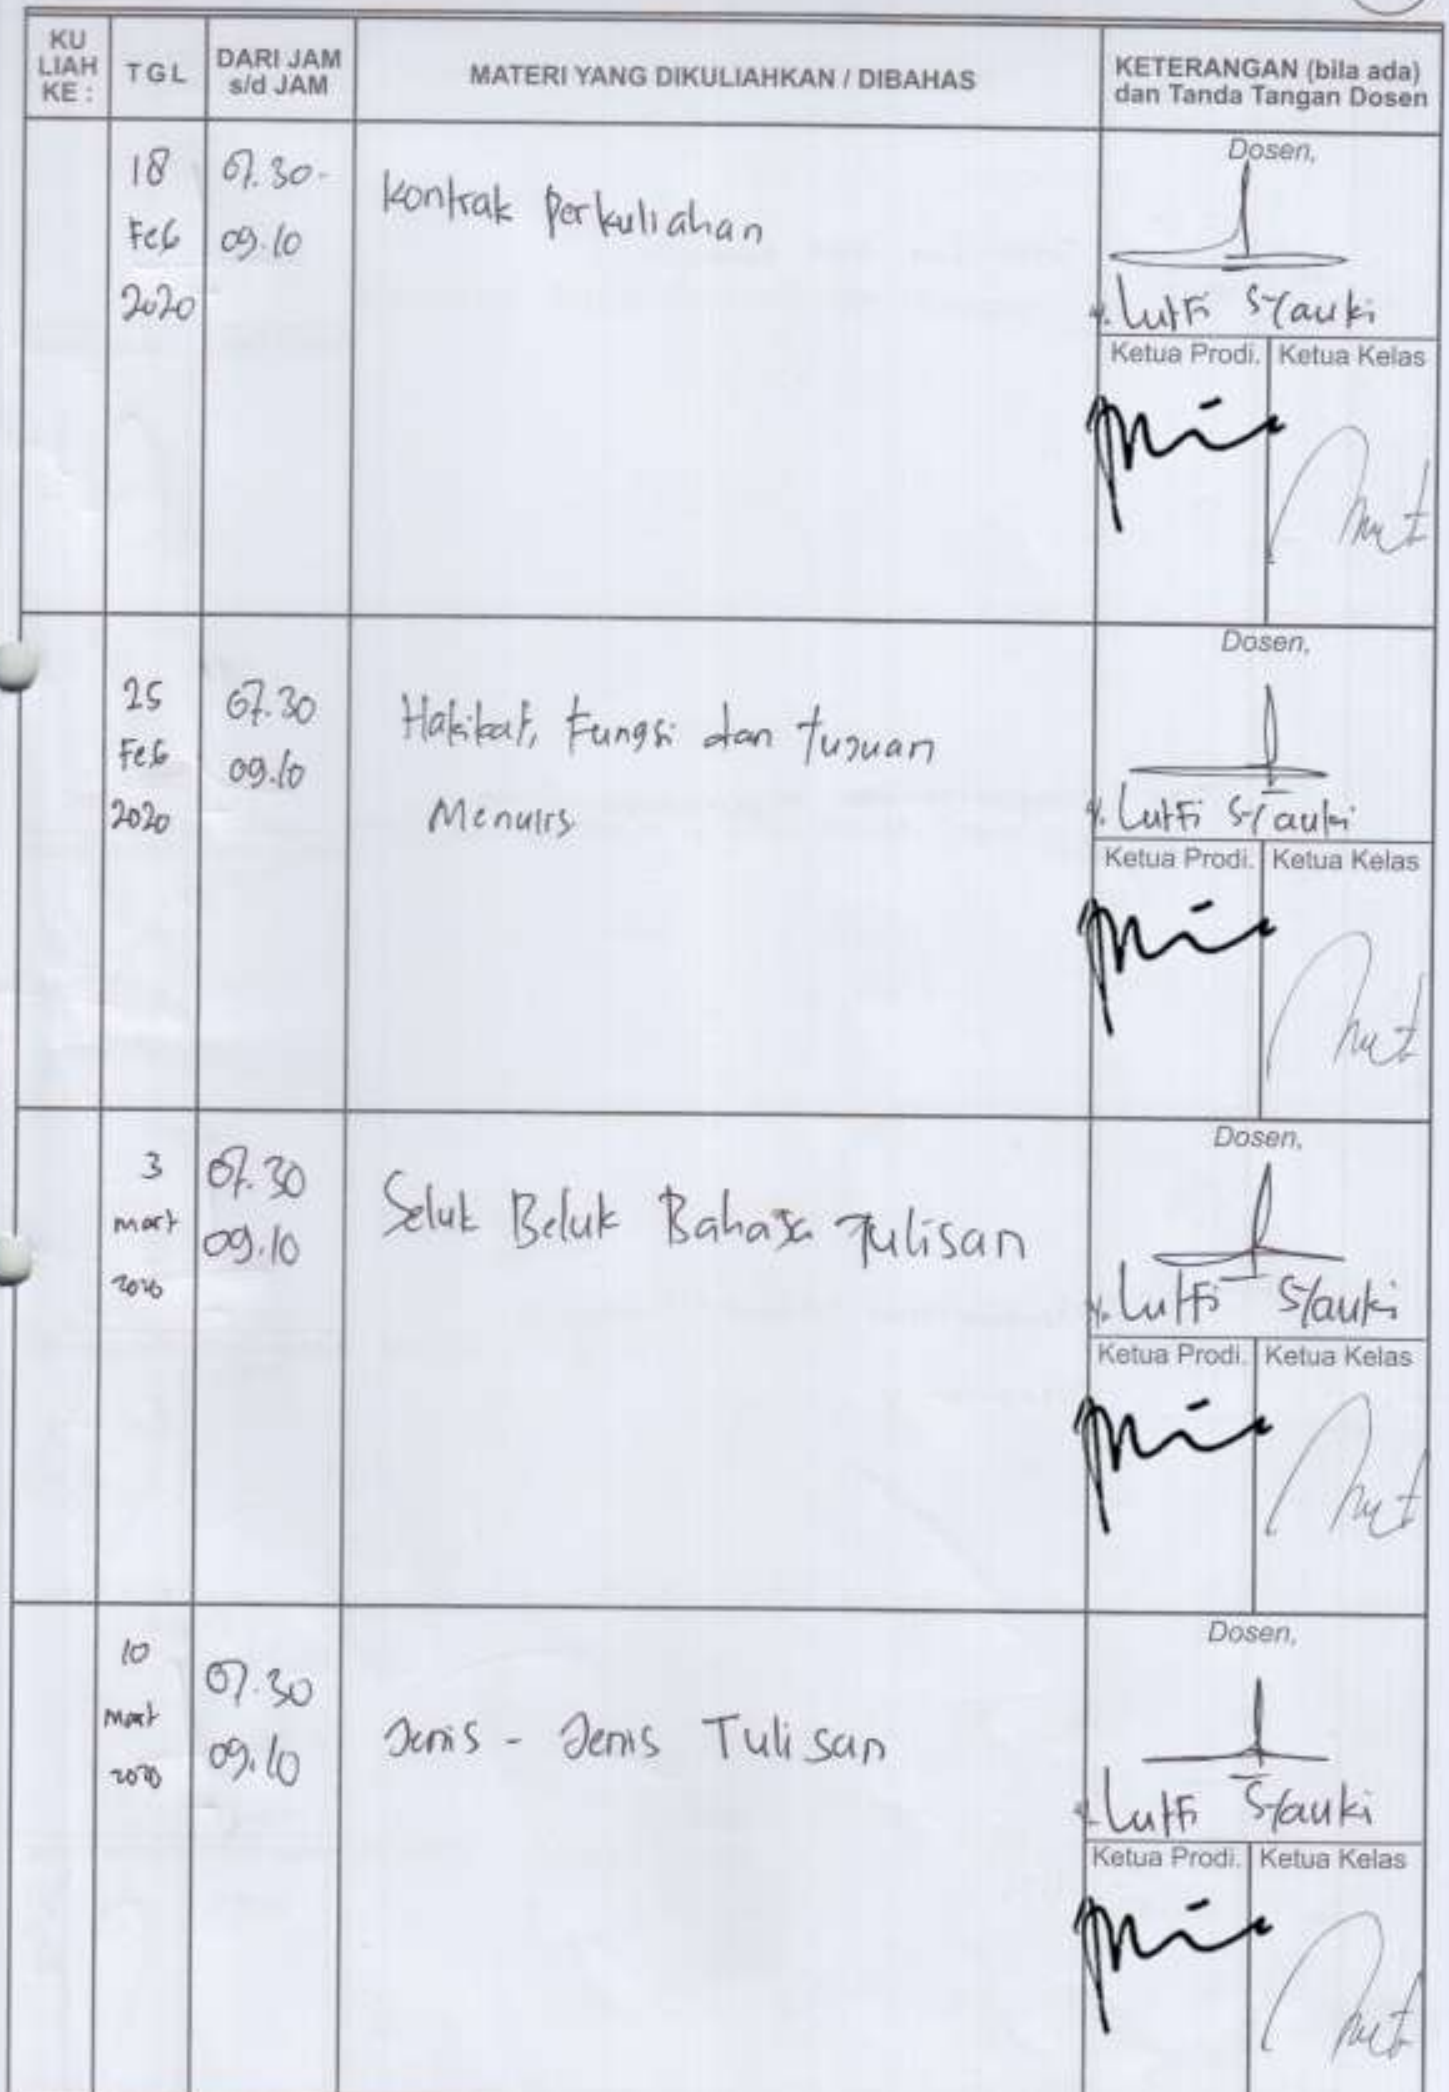 KU LIAH KE :
TGL
DARI JAM s/d JAM
MATERI YANG DIKULIAHKAN / DIBAHAS
KETERANGAN (bila ada) dan Tanda Tangan Dosen
18
Feb
2020
07.30-
09.10
Kontrak Perkuliahan
Dosen,
Lutfi Syauki
Ketua Prodi.
Ketua Kelas
25
Feb
2020
07.30
09.10
Hakikat, Fungsi dan tujuan
Menulis
Dosen,
Lutfi Syauki
Ketua Prodi.
Ketua Kelas
3
mart
2020
07.30
09.10
Seluk Beluk Bahasa Tulisan
Dosen,
Lutfi Syauki
Ketua Prodi.
Ketua Kelas
10
mart
2020
07.30
09.10
Jenis - Jenis Tulisan
Dosen,
Lutfi Syauki
Ketua Prodi.
Ketua Kelas